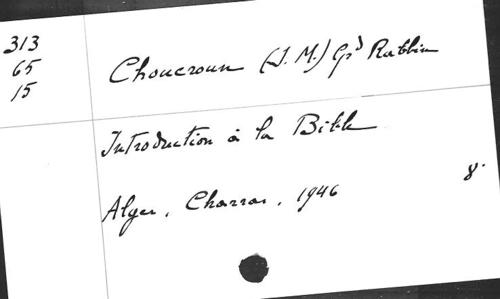 313
65
15
Choucroun (I. M.) Gd Rabbin
Introduction à la Bible
Alger, Charras, 1946
8°